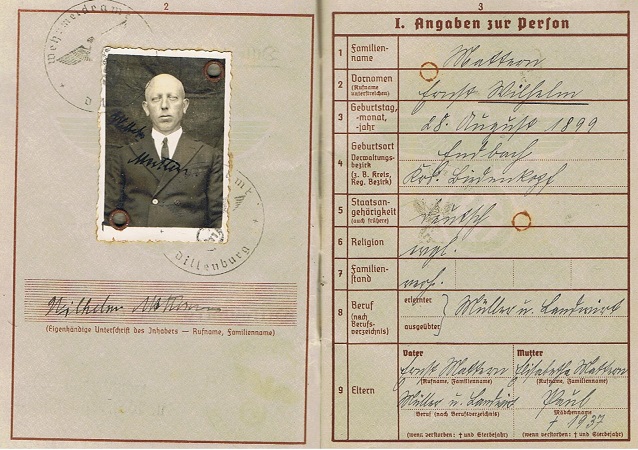 2
Wehrmeldeamt
Dillenburg
Wilhelm Mattern
(Eigenhändige Unterschrift des Inhabers — Rufname, Familienname)
3
I. Angaben zur Person
1 Familien-
name
Mattern
2 Vornamen
(Rufname
unterstreichen)
Ernst Wilhelm
3 Geburtstag,
-monat,
-jahr
28. August 1899
4 Geburtsort
Verwaltungs-
bezirk
(z. B. Kreis,
Reg. Bezirk)
Endbach
Krs. Biedenkopf
5 Staatsan-
gehörigkeit
(auch frühere)
deutsch
6 Religion
evgl.
7 Familien-
stand
verh.
8 Beruf
(nach
Berufs-
verzeichnis)
erlernter
ausgeübter
Müller u. Landwirt
9 Eltern
Vater
Ernst Mattern
(Rufname, Familienname)
Müller u. Landwirt
Beruf (nach Berufsverzeichnis)
(wenn verstorben: † und Sterbejahr)
Mutter
Elisabetha Mattern
(Rufname, Familienname)
Paul
Mädchenname
† 1937
(wenn verstorben: † und Sterbejahr)